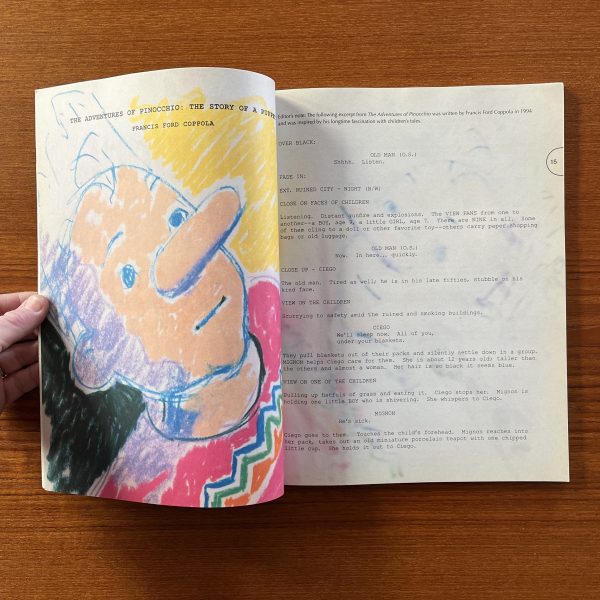 THE ADVENTURES OF PINOCCHIO: THE STORY OF A
FRANCIS FORD COPPOLA
Editor's note: The following excerpt from The Adventures of Pinocchio was written by Francis Ford Coppola in 1994
and was inspired by his longtime fascination with children's tales.
15
OVER BLACK:
OLD MAN (O.S.)
Shhhh. Listen.
FADE IN:
EXT. RUINED CITY - NIGHT (B/W)
CLOSE ON FACES OF CHILDREN
Listening. Distant gunfire and explosions. The VIEW PANS from one to
another--a BOY, age 9, a little GIRL, age 7. There are NINE in all. Some
of them cling to a doll or other favorite toy--others carry paper shopping
bags or old luggage.
OLD MAN (O.S.)
Now. In here... quickly.
CLOSE UP - CIEGO
The old man. Tired as well; he is in his late fifties, stubble on his
kind face.
VIEW ON THE CHILDREN
Scurrying to safety amid the ruined and smoking buildings.
CIEGO
We'll sleep now. All of you,
under your blankets.
They pull blankets out of their packs and silently nestle down in a group.
MIGNON helps Ciego care for them. She is about 12 years old; taller than
the others and almost a woman. Her hair is so black it seems blue.
VIEW ON ONE OF THE CHILDREN
Pulling up fistfuls of grass and eating it. Ciego stops her. Mignon is
holding one little BOY who is shivering. She whispers to Ciego.
MIGNON
He's sick.
Ciego goes to them. Touches the child's forehead. Mignon reaches into
her pack, takes out an old miniature porcelain teapot with one chipped
little cup. She holds it out to Ciego.